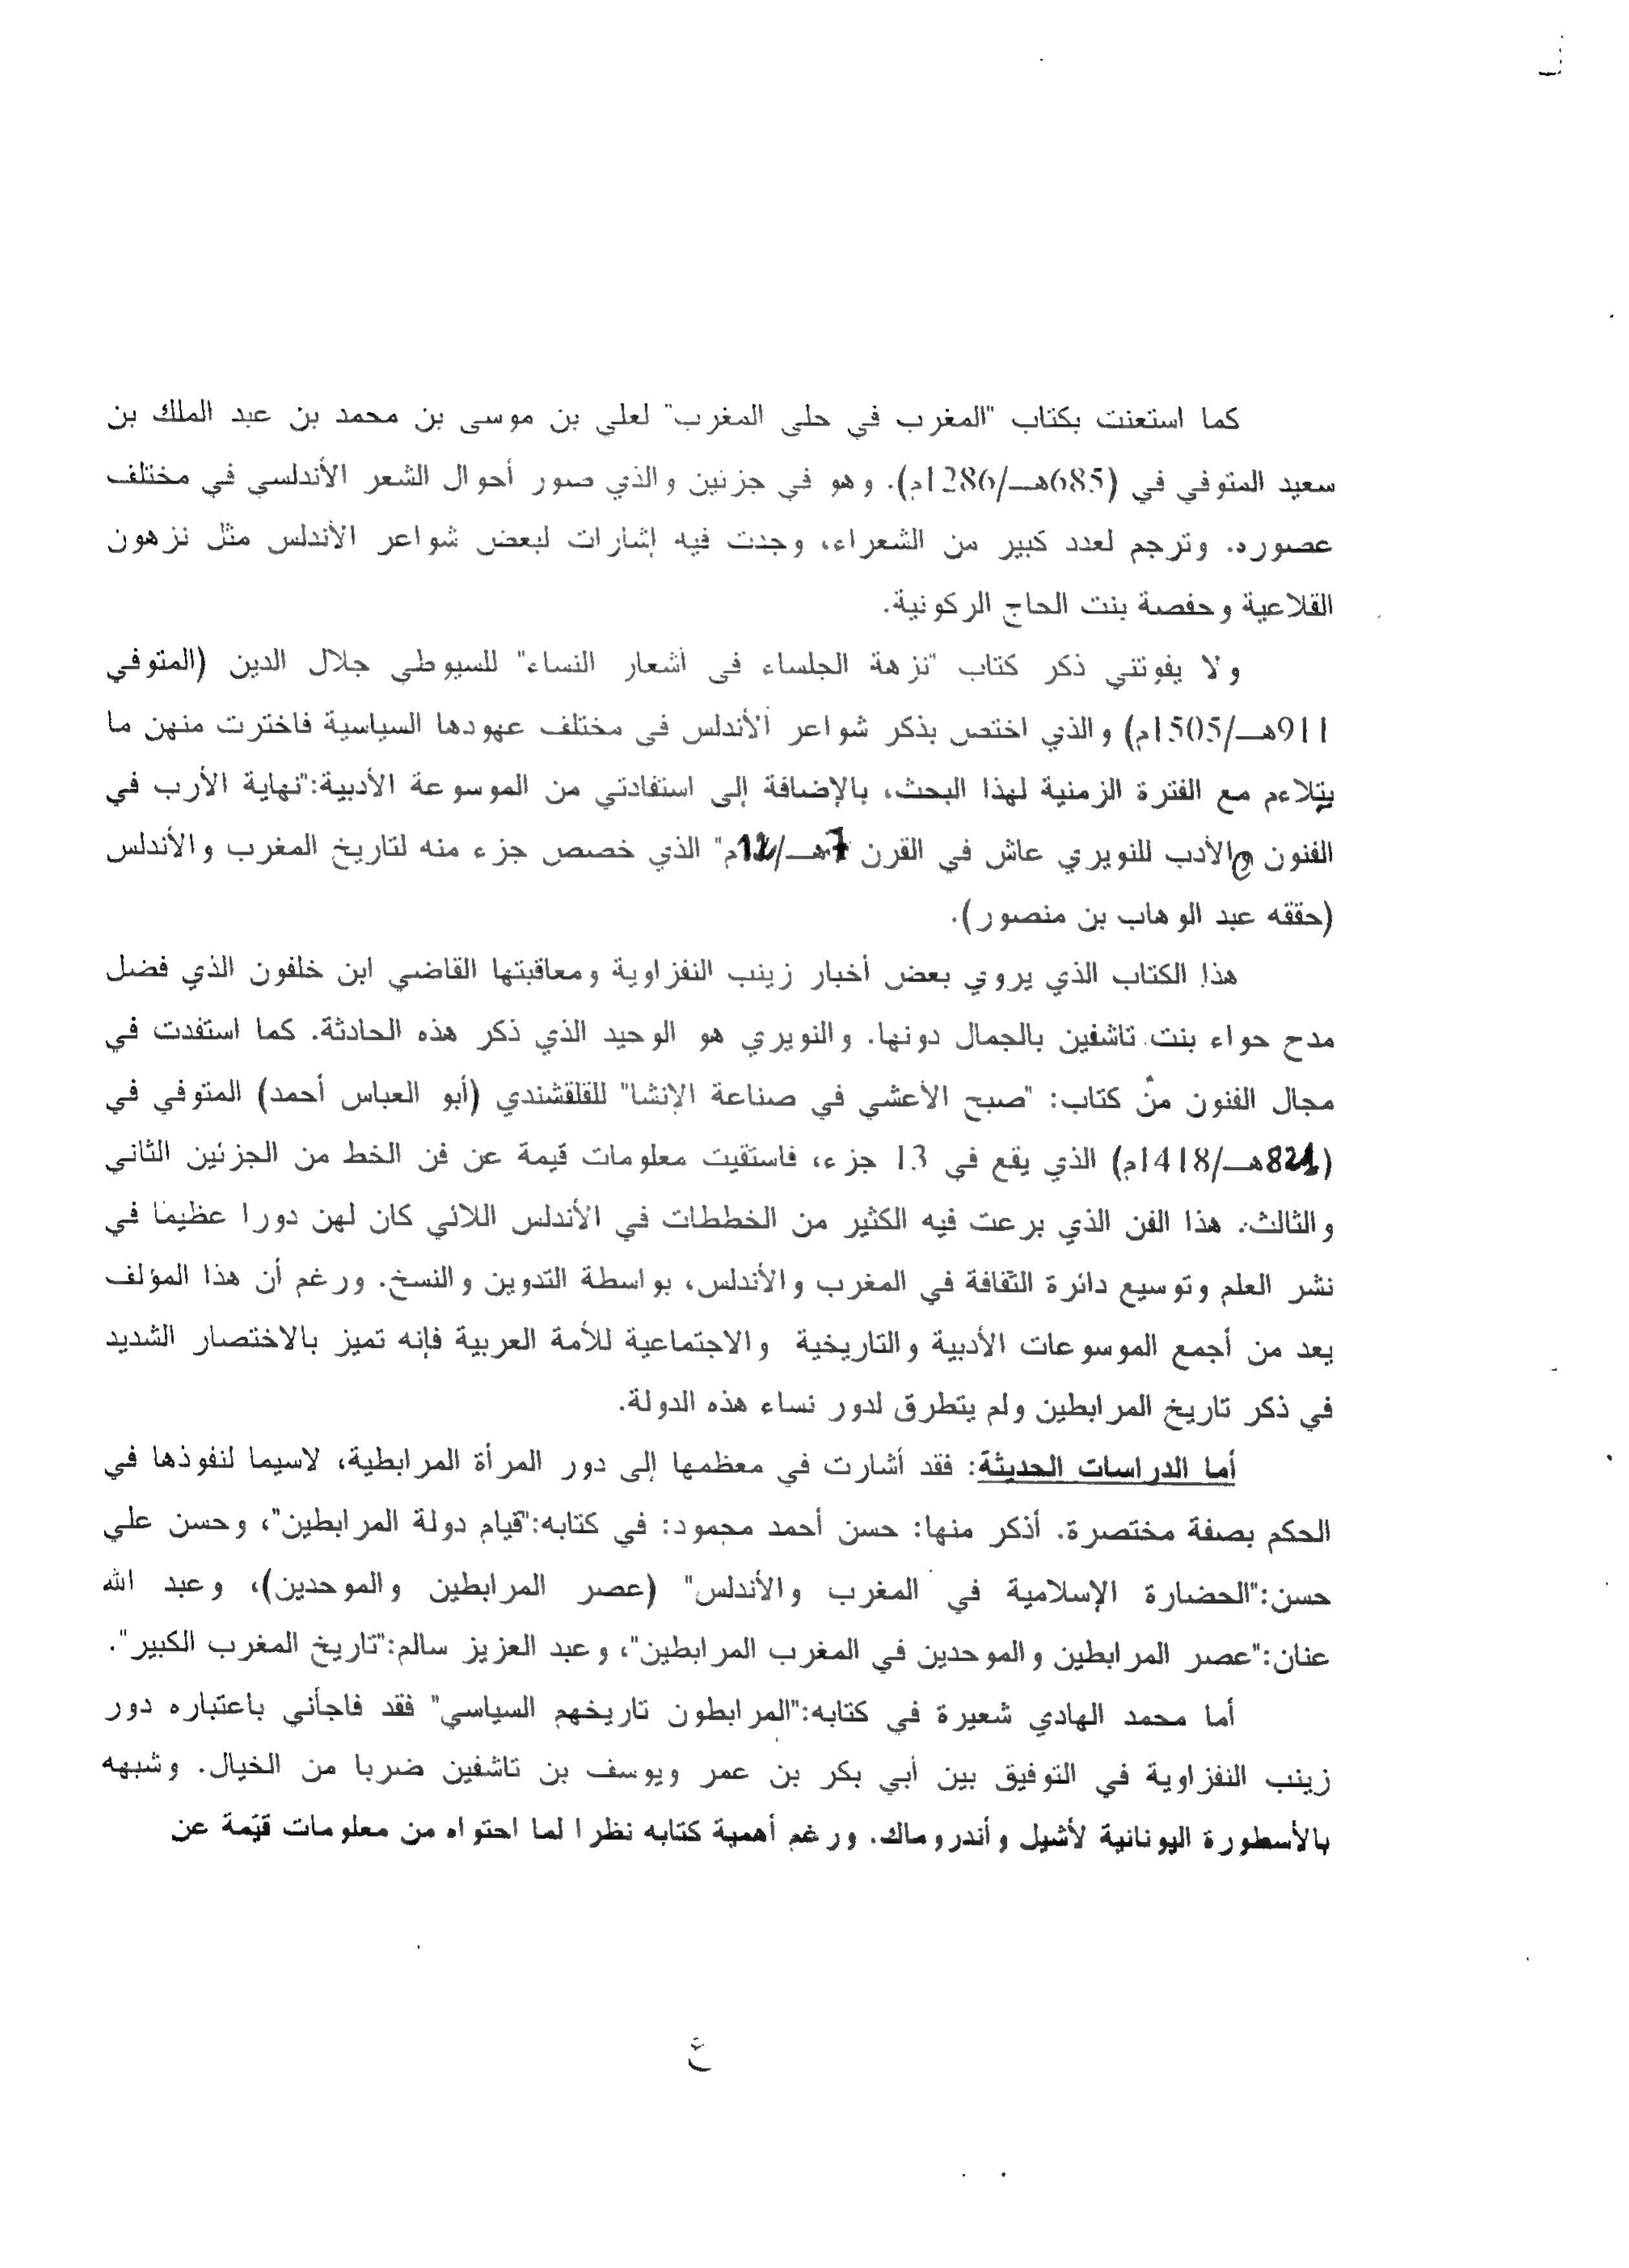 كما استعنت بكتاب "المغرب في حلى المغرب" لعلي بن موسى بن محمد بن عبد الملك بن
سعيد المتوفي في (685هــ/1286م). وهو في جزئين والذي صور أحوال الشعر الأندلسي في مختلف
عصوره. وترجم لعدد كبير من الشعراء، وجدت فيه إشارات لبعض شواعر الأندلس مثل نزهون
القلاعية وحفصة بنت الحاج الركونية.
ولا يفوتني ذكر كتاب "نزهة الجلساء في أشعار النساء" للسيوطي جلال الدين (المتوفي
911هــ/1505م) والذي اختص بذكر شواعر الأندلس في مختلف عهودها السياسية فاخترت منهن ما
يتلاءم مع الفترة الزمنية لهذا البحث، بالإضافة إلى استفادتي من الموسوعة الأدبية:"نهاية الأرب في
الفنون والأدب للنويري عاش في القرن 7هــ/12م" الذي خصص جزء منه لتاريخ المغرب والأندلس
(حققه عبد الوهاب بن منصور).
هذا الكتاب الذي يروي بعض أخبار زينب النفزاوية ومعاقبتها القاضي ابن خلفون الذي فضل
مدح حواء بنت تاشفين بالجمال دونها. والنويري هو الوحيد الذي ذكر هذه الحادثة. كما استفدت في
مجال الفنون من كتاب: "صبح الأعشي في صناعة الإنشا" للقلقشندي (أبو العباس أحمد) المتوفي في
(821هــ/1418م) الذي يقع في 13 جزء، فاستقيت معلومات قيمة عن فن الخط من الجزئين الثاني
والثالث. هذا الفن الذي برعت فيه الكثير من الخططات في الأندلس اللائي كان لهن دورا عظيما في
نشر العلم وتوسيع دائرة الثقافة في المغرب والأندلس، بواسطة التدوين والنسخ. ورغم أن هذا المؤلف
يعد من أجمع الموسوعات الأدبية والتاريخية والاجتماعية للأمة العربية فإنه تميز بالاختصار الشديد
في ذكر تاريخ المرابطين ولم يتطرق لدور نساء هذه الدولة.
أما الدراسات الحديثة: فقد أشارت في معظمها إلى دور المرأة المرابطية، لاسيما لنفوذها في
الحكم بصفة مختصرة. أذكر منها: حسن أحمد محمود: في كتابه:"قيام دولة المرابطين"، وحسن علي
حسن:"الحضارة الإسلامية في المغرب والأندلس" (عصر المرابطين والموحدين)، وعبد الله
عنان:"عصر المرابطين والموحدين في المغرب المرابطين"، وعبد العزيز سالم:"تاريخ المغرب الكبير".
أما محمد الهادي شعيرة في كتابه:"المرابطون تاريخهم السياسي" فقد فاجأني باعتباره دور
زينب النفزاوية في التوفيق بين أبي بكر بن عمر ويوسف بن تاشفين ضربا من الخيال. وشبهه
بالأسطورة اليونانية لأشيل وأندروماك. ورغم أهمية كتابه نظرا لما احتواه من معلومات قيّمة عن
غ